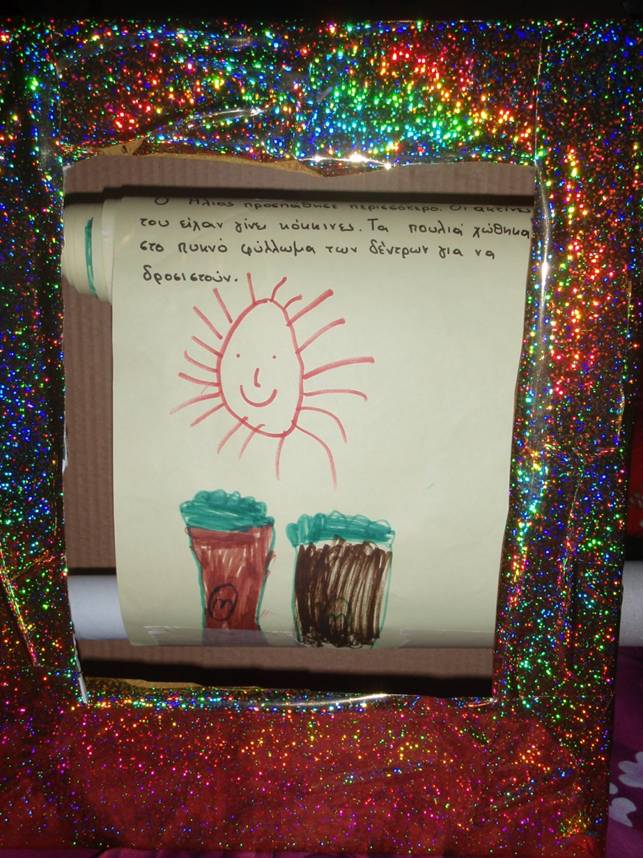 Ο Ήλιος προσπάθησε περισσότερο. Οι ακτίνες
του είχαν γίνει κόκκινες. Τα πουλιά χώθηκα
στο πυκνό φύλλωμα των δέντρων για να
δροσιστούν.
m
m